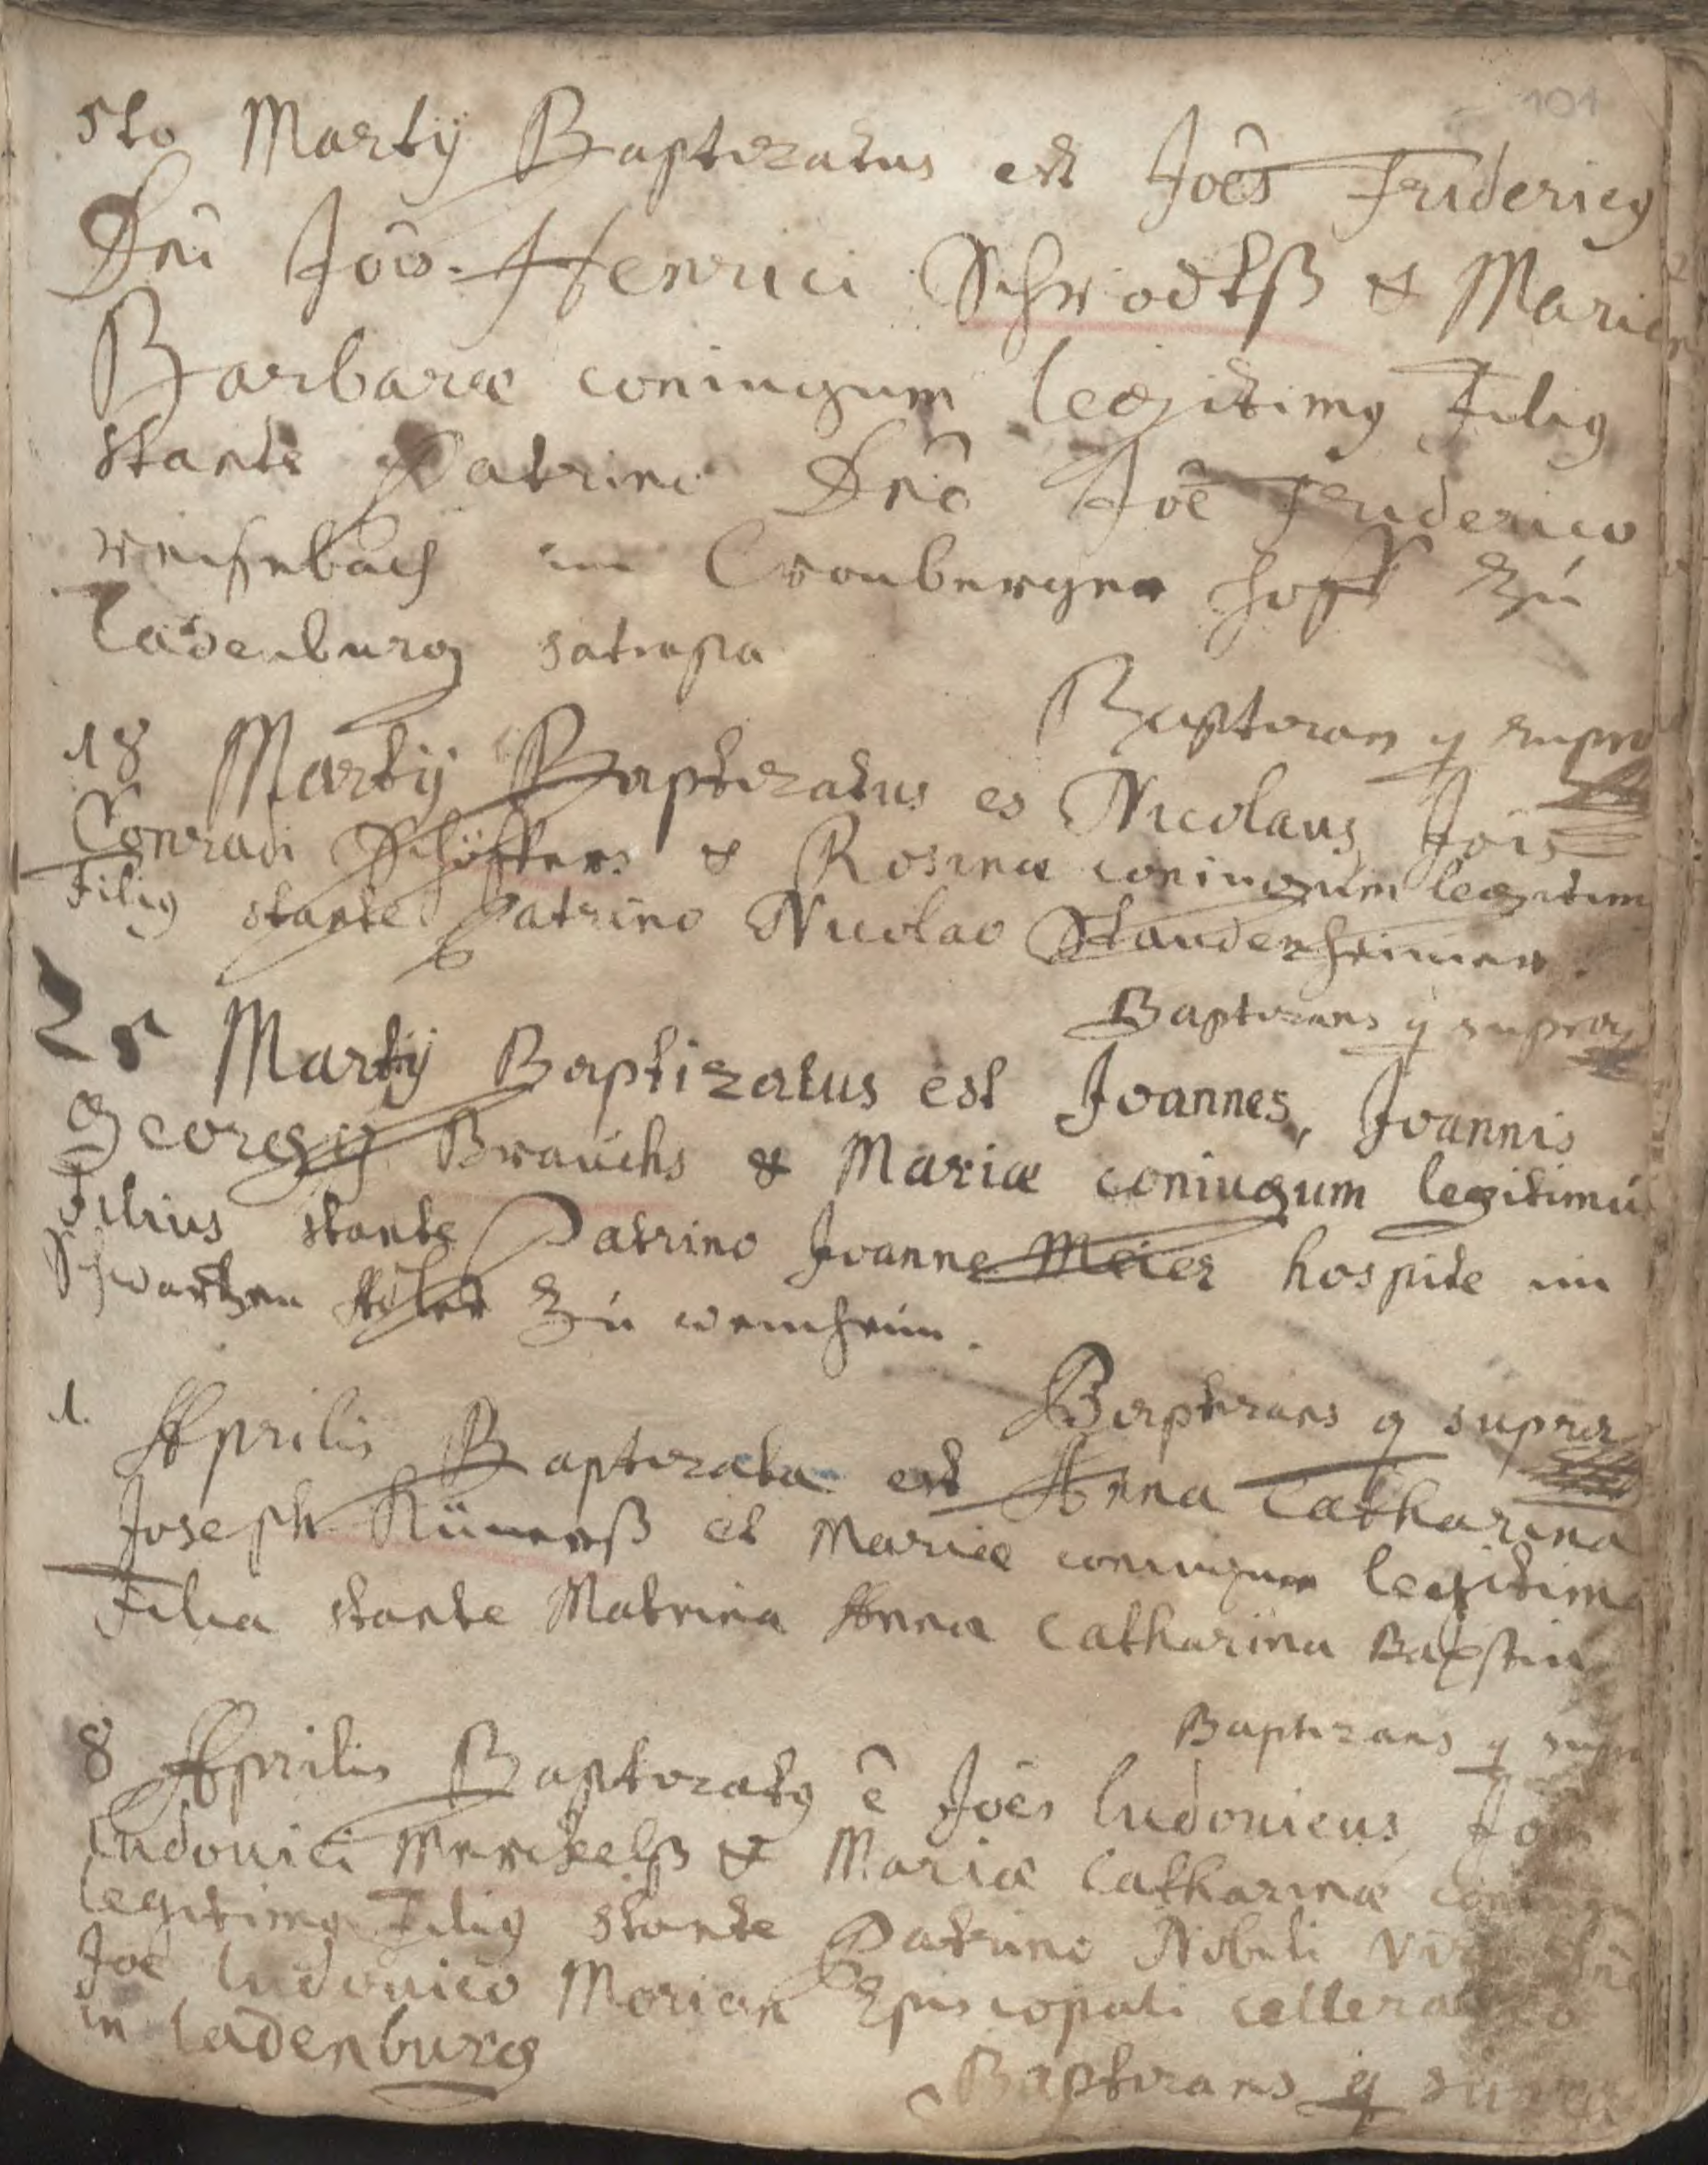 101
5to Martij Baptizatus est Joês Fridericg
Dnî Joîs Henrici Schrodtß & Mariæ
Barbaræ coniugum legitimg Filig
stante Patrino Dnô Joê Friderico
reisenbach im Cronberger hoff zu
Ladenburg satrapa
Baptizans q supra
18 Martij Baptizatus es Nicolaus Joîs
Conradi Schöffers & Rosinæ coniugum legitim
Filig stante Patrino Nicolao Staudenheimer.
Baptizans q supra
25 Martij Baptizatus est Joannes, Joannis
Georgij Brauchs & Mariæ coniugum legitimu
Filius stante Patrino Joanne Meier hospite im
Schwartzen Adler zu weinheim.
Baptizans q supra
1. Aprilis Baptizata est Anna Catharina
Joseph et Mariæ coniugum legitima
Filia stante Matrina Anna Catharina
Baptizans q supra
8 Aprilis Baptizatg ê Joês ludouicus Joîs
ludouici Merckelß & Mariæ Catharinæ
legitimg Filig stante Patrino Nobili Viro
Joê ludouico Morian Episcopali
in ladenburg
Baptizans q supra